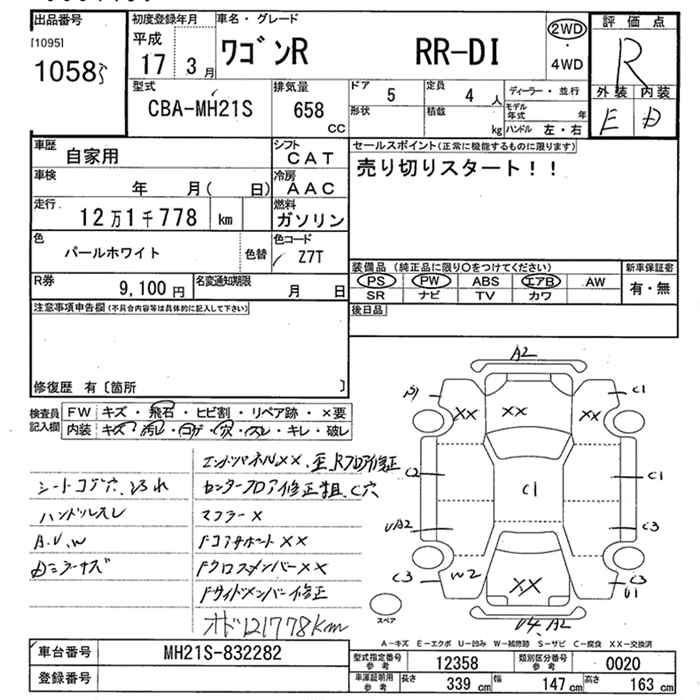 出品番号 初度登録年月 車名・グレード 評価点
[1095] 平成
1058 17 3月 ワゴンR RR-DI 2WD ・ 4WD R
外装 内装
E D
型式 CBA-MH21S 排気量 658 CC
ドア 5 定員 4人 ディーラー・並行
形状 積載 kg モデル年式 年
ハンドル 左・右
車歴 自家用 シフト CAT
車検 年 月( 日) 冷房 AAC
走行 12万1千778 km 燃料 ガソリン
色 パールホワイト 色替 色コード Z7T
R券 9,100円 名変通知期限 月 日
セールスポイント(正常に機能するものに限ります)
売り切りスタート!!
装備品(純正品に限り○をつけてください) 新車保証書
PS PW ABS エアB AW 有・無
SR ナビ TV カワ
後日品
注意事項申告欄(不具合内容等は具体的に記入して下さい)
修復歴 有〔箇所 〕
検査員記入欄 FW キズ・飛石・ヒビ割・リペア跡・×要
内装 キズ・汚レ・コゲ・穴・スレ・キレ・破レ
エンドパネルXX、
シートコゲ穴、よゴれ センターフロア修正
ハンドルスレ マフラーX
A.U.W FコアサポートXX
FクロスメンバーXX
Fサイドメンバー修正
オド121778km
A2
C1
XX XX XX
C2 C1 C1
UA2 C3
C3 W2 XX C3
U1
U4.A2
スペア
A-キズ E-エクボ U-凹み W-補修跡 S-サビ C-腐食 XX-交換済
車台番号 MH21S-832282
登録番号
型式指定番号 参考 12358 類別区分番号 参考 0020
車庫証明用 参考 長さ 339 cm 幅 147 cm 高さ 163 cm